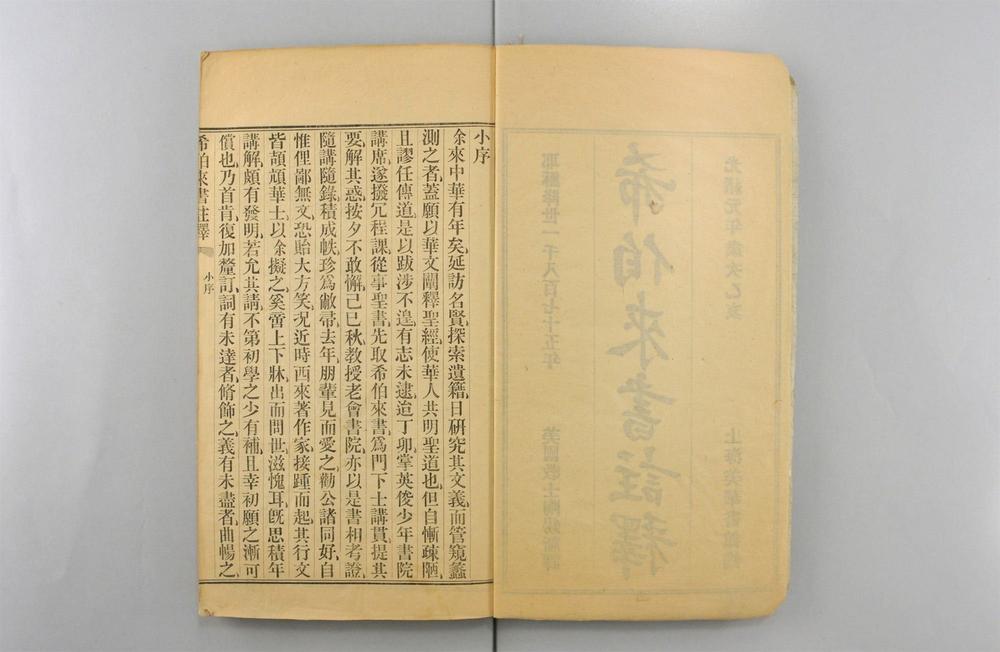 光緒元年歲次乙亥
上海美華書館
希伯來書註釋
耶穌降世一千八百七十五年
美國教士
小序
余來中華有年矣、延訪名賢、探索遺籍、日研究其文義、而管窺蠡
測之者、蓋願以華文闡釋聖經、使華人共明聖道也、但自慚疎陋、
且謬任傳道、是以跋涉不遑、有志未逮、迨丁卯掌英俊少年書院
講席、遂撥冗程課、從事聖書、先取希伯來書、爲門下士講貫、提其
要、解其惑、按夕不敢懈、己巳秋、教授老會書院、亦以是書相考證、
隨講隨錄、積成帙、珍爲敝帚、去年朋輩見而愛之、勸公諸同好、自
惟俚鄙無文、恐貽大方笑、况近時西來著作家、接踵而起、其行文
皆頡頏華士、以余擬之、奚啻上下牀、出而問世、滋愧耳、旣思積年
講解、頗有發明、若允其請、不第初學之少有補、且幸初願之漸可
償也、乃首肯、復加釐訂、詞有未達者、脩飾之、義有未盡者、曲暢之、
希伯來書註釋
小序